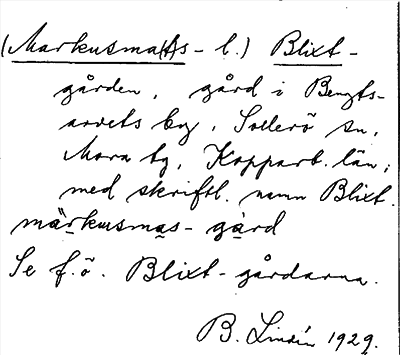 (Markusma(t)s- l.) Blixt-
gården, gård i Bengts-
arvets by, Sollerö sn,
Mora tg, Kopparb. län;
med skriftl. namn Blixt.
märkusmas-gård
Se f.ö. Blixt-gårdarna.
B. Lindén 1929.